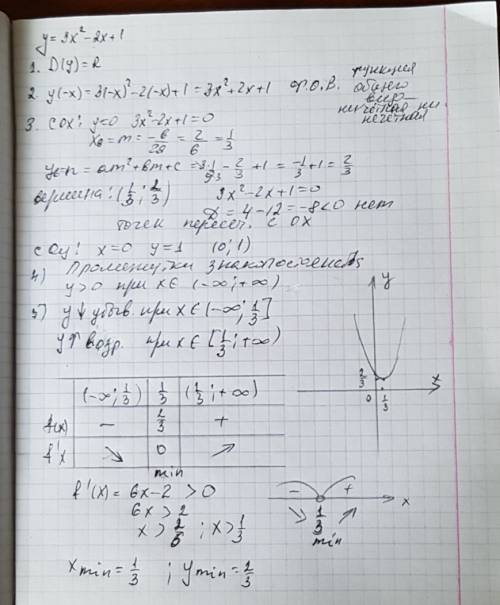 y=3x²-2x+1
1. D(y)=R
2. y(-x)=3(-x)²-2(-x)+1=3x²+2x+1 ф.о.в. функция общего вид ни чётная ни нечётная
3. с ox: y=0 3x²-2x+1=0
x₀=m=-b/2a=2/6=1/3
y=n=am²+bm+c=3·1/9-2/3+1=-1/3+1=2/3
вершина: (1/3; 2/3) 3x²-2x+1=0
D=4-12=-8<0 нет
точек пересеч. с OX
с oy: x=0 y=1 (0;1)
4) Промежутки знакопостоянств
y>0 при x∈(-∞;+∞)
5) y↓ убыв. при x∈(-∞;1/3]
y↑ возр. при x∈[1/3;+∞)
y
2/3
0
1/3
x
(-∞;1/3) 1/3 (1/3;+∞)
f(x) - 2/3 +
f'x ↘ 0 ↗
min
f'(x)=6x-2>0
6x>2
x>2/6 ; x>1/3
- + x
↘ 1/3 ↗
min
xmin=1/3 ; ymin=2/3